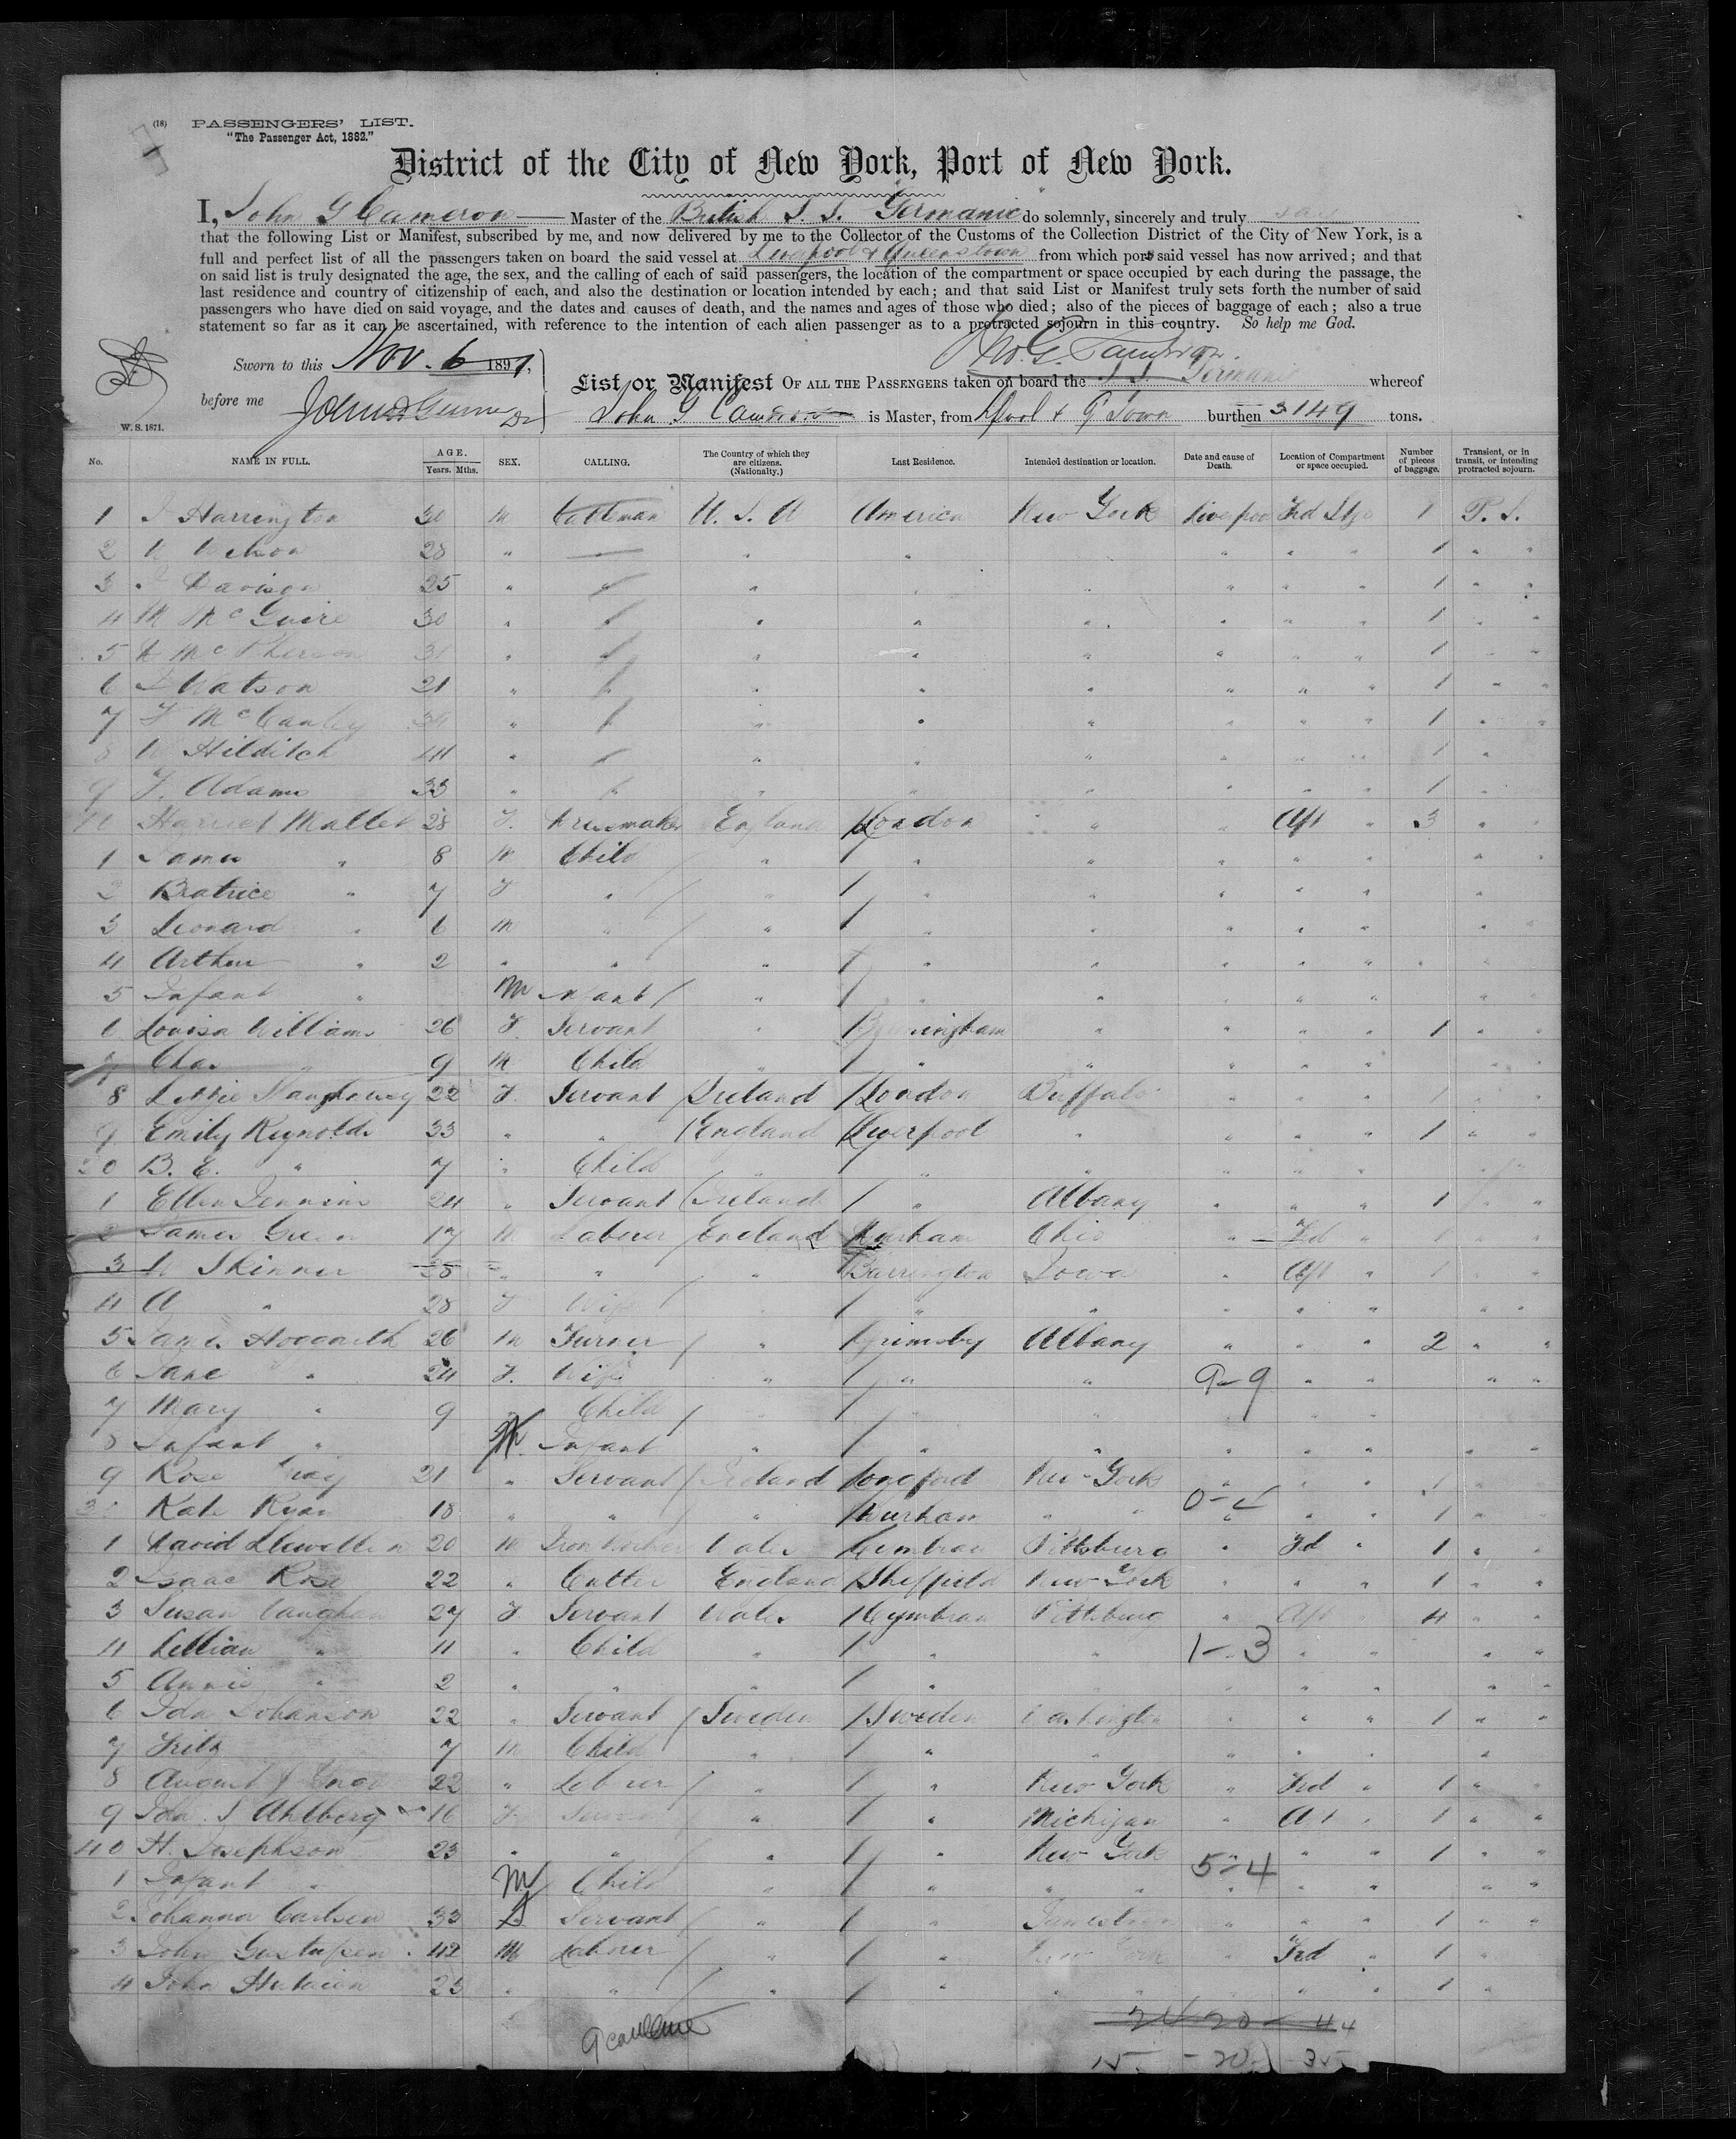 (18) PASSENGERS' LIST.
"The Passenger Act, 1882."
District of the City of New York, Port of New York.
I, John G Cameron Master of the British S. S. Germanic do solemnly, sincerely and truly
that the following List or Manifest, subscribed by me, and now delivered by me to the Collector of the Customs of the Collection District of the City of New York, is a
full and perfect list of all the passengers taken on board the said vessel at Liverpool & Queenstown from which port said vessel has now arrived; and that
on said list is truly designated the age, the sex, and the calling of each of said passengers, the location of the compartment or space occupied by each during the passage, the
last residence and country of citizenship of each, and also the destination or location intended by each; and that said List or Manifest truly sets forth the number of said
passengers who have died on said voyage, and the dates and causes of death, and the names and ages of those who died; also of the pieces of baggage of each; also a true
statement so far as it can be ascertained, with reference to the intention of each alien passenger as to a protracted sojourn in this country. So help me God.
Jno. G. Cameron.
Sworn to this Nov. 6 1897,
before me
W. S. 1871.
List or Manifest OF ALL THE PASSENGERS taken on board the S. S. Germanic whereof
John G Cameron is Master, from Lpool & Q Town burthen 3149 tons.
No. NAME IN FULL. AGE. Years. Mths. SEX. CALLING. The Country of which they are citizens. (Nationality.) Last Residence. Intended destination or location. Date and cause of Death. Location of Compartment or space occupied. Number of pieces of baggage. Transient, or in transit, or intending protracted sojourn.
1 Harrington 30 M Cattleman U. S. A America New York Liverpool Frd Stge 1 P. S.
2 28 " " " " " " 1 " "
3 Davison 25 " " " " " " " " 1 " "
4 M McGuire 30 " " " " " " " 1 " "
5 McPherson 31 " " " " " " " 1 " "
6 Watson 21 " " " " " " " 1 " "
7 McCauley " " " " " " " 1 " "
8 W Hilditch 41 " " " " " " " 1 "
9 F. Adams 33 " " " " " " " 1 "
Harriet Mallet 28 F. Dressmaker England London " " Aft " 3 " "
1 James " 8 M Child " " " " " " " "
2 Beatrice " 7 F " " " " " " " "
3 Leonard " 6 M " " " " " " " " "
4 Arthur " 2 " " " " " " " " " "
5 Infant " M Infant " " " " " " " "
6 Louisa Williams 26 F. Servant " Birmingham " " " " 1 " "
Chas 9 M Child " " " " " " " "
8 22 F. Servant Ireland London Buffalo " " " 1 " "
9 Emily Reynolds 33 " " England Liverpool " " " " 1 " "
20 B. E. " 7 " Child " " " " " " " "
1 Ellen Jennins 24 " Servant Ireland " Albany " " " 1 " "
2 James Green 17 M Laborer England Durham Ohio " Frd " 1 " "
3 W Skinner 28 " " " Barrington Iowa " Aft " 1 " "
4 A " 28 F Wife " " " " " " " "
5 Hoggarth 26 M Turner " Grimsby Albany " " " 2 " "
6 Jane " 24 F. Wife " " " 9-9 " " " "
7 Mary " 9 Child " " " " "
8 Infant " Infant " " " " " " " "
9 Rose 21 " Servant Ireland Longford New York " " " 1 "
30 Kate Ryan 18 " " " Durham " " 0-4 " " 1 "
1 David Llewellen 20 M Iron Worker Wales Cumbran Pittsburg " Frd " 1 " "
2 Isaac Rose 22 " Cutler England Sheffield New York " " " 1 " "
3 Susan Vaughan 27 F Servant Wales Cymbran Pittsburg " Aft " 4 " "
4 Lillian " 11 " Child " " " 1-3 " " " "
5 Annie " 2 " " " " " " " " " "
6 Ida Johanson 22 " Servant Sweden Sweden Washington " " " 1 " "
7 Fritz 7 M Child " " " " " " "
8 August 22 " Laborer " " New York " Frd " 1 " "
9 Ida S Ahlberg 16 F " " Michigan " Aft " 1 " "
40 H. Josephson 23 " " " " New York 5-4 " " 1 " "
1 Infant " M Child " " " " " " " " "
2 Johanna Carlson 33 F Servant " " " " " 1 " "
3 John Gustafsen 42 M Laborer " " New York " Frd " 1 "
4 John 23 " " " " " " " " " 1 "
24 20 - 44
15 - 20 - 35